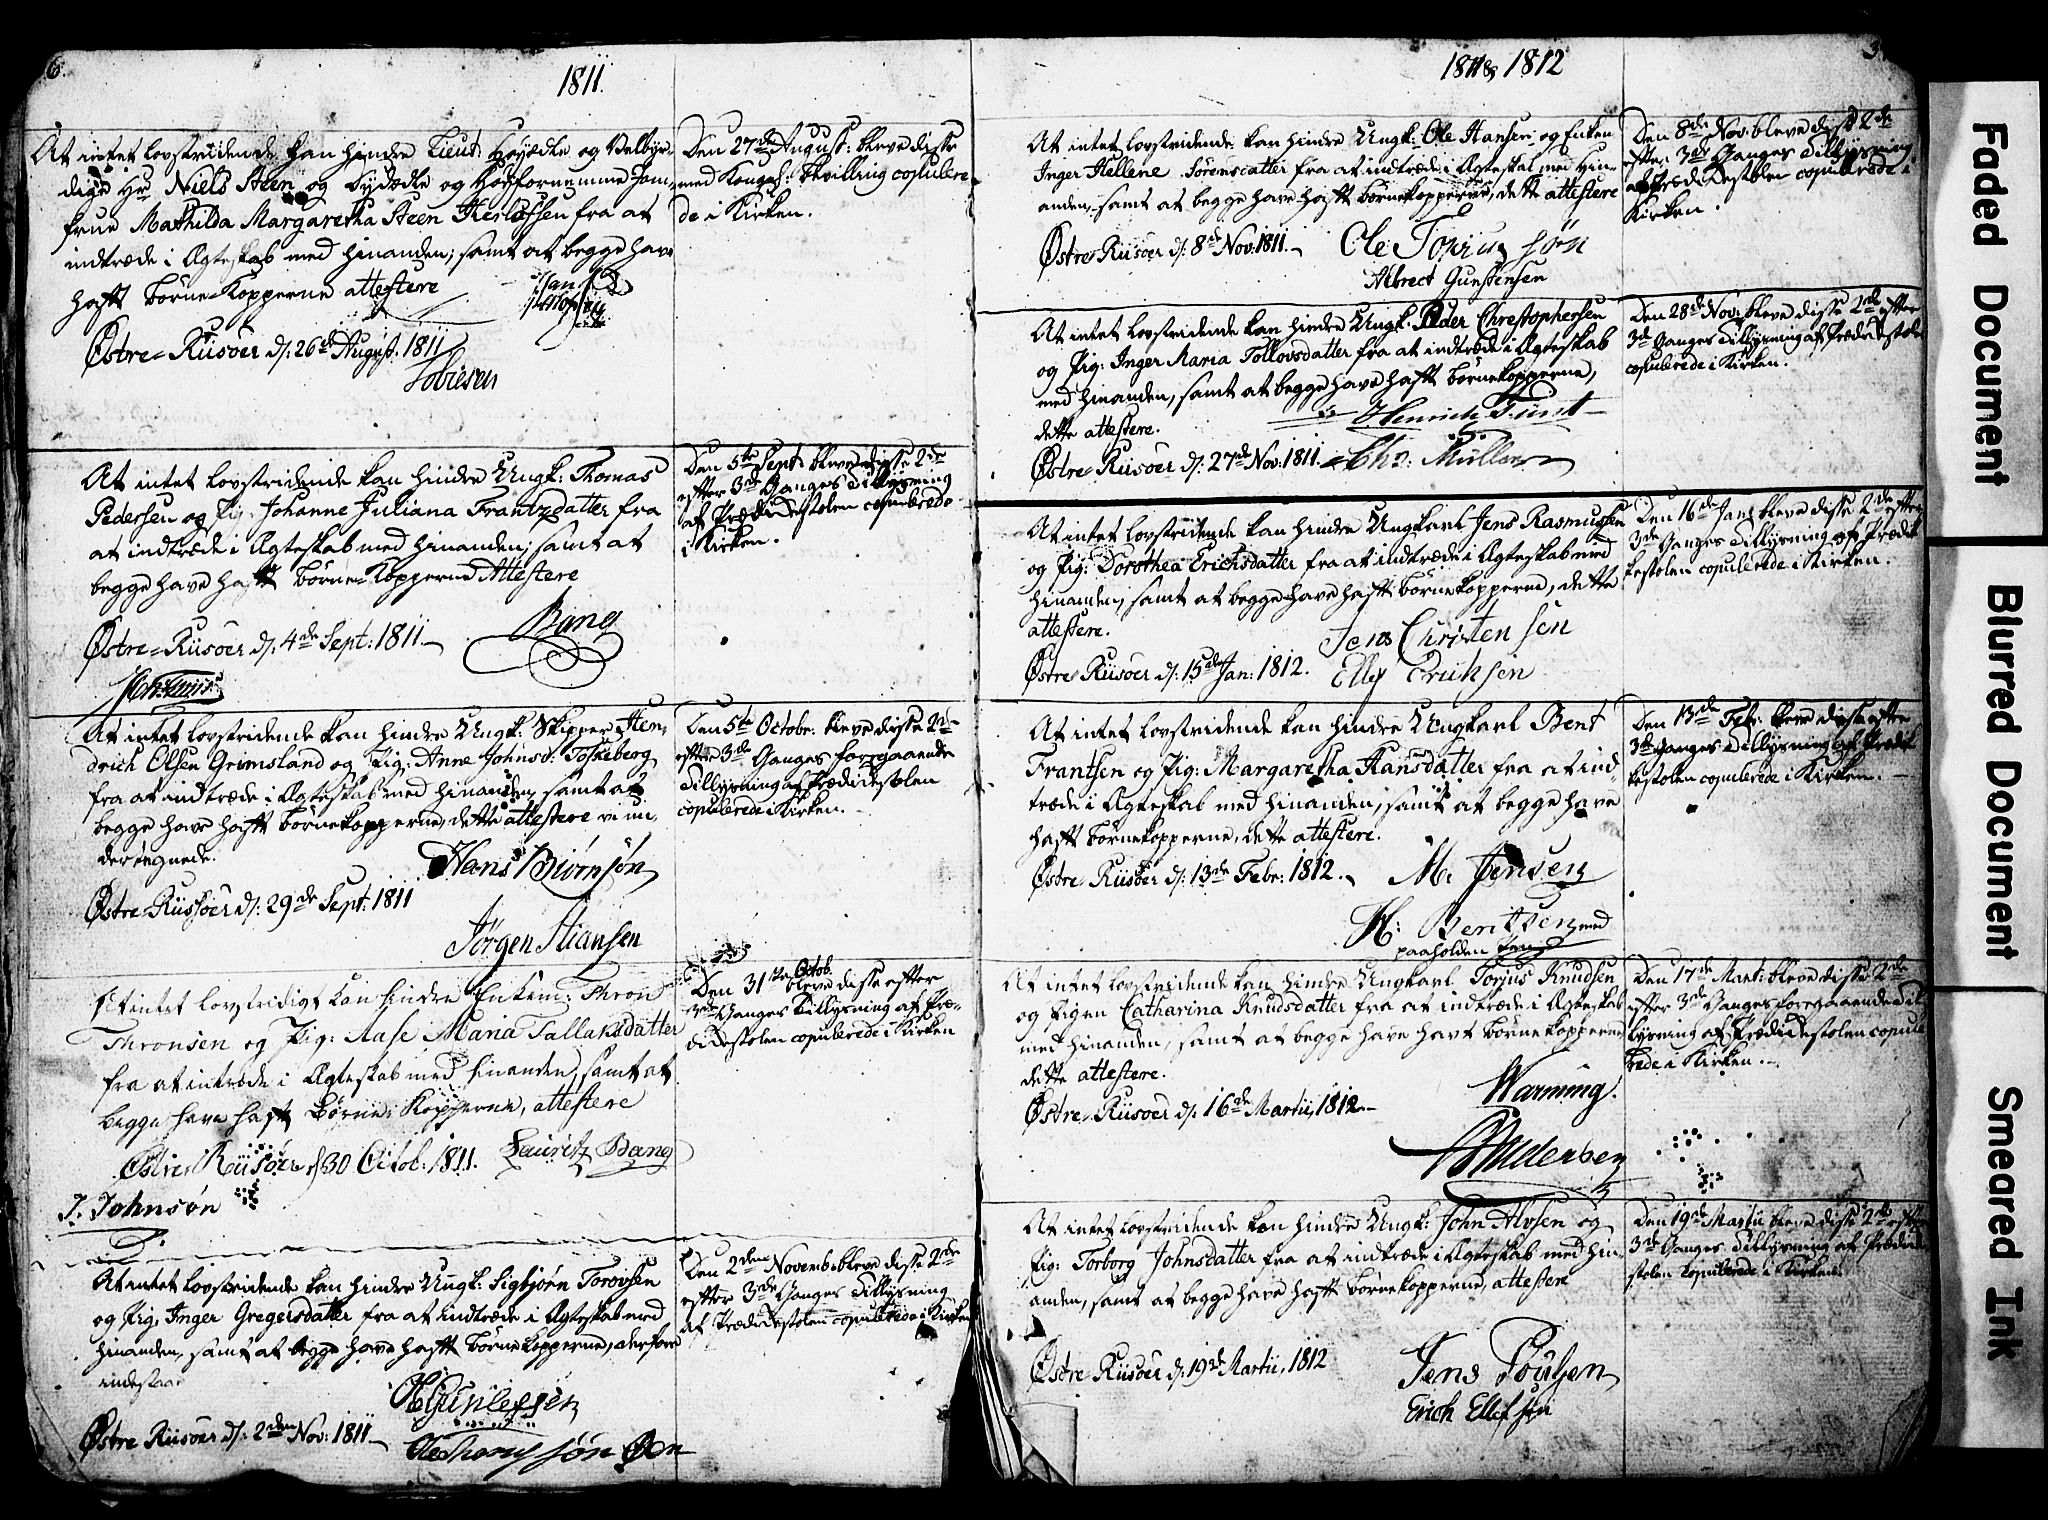 6.
1811.
At intet lovstridende kan hindre Lieut: Høyædle og Velbyr-
dige Hr Niels Steen og Dydædle og Høyfornemme Jom-
frue Mathilda Margaretha Steen fra at
indtræde i Ægteskab med hinanden, samt at begge have
haft Børne-Kopperne attestere
Østre-Riisøer d: 26de August. 1811
Tobiesen
Den 27de August: bleve disse
med Kongel: Bevilling copulere
de i Kirken.
At intet lovstridende kan hindre Ungk: Thomas
Pedersen og Pig: Johanne Juliana Frantzdatter fra
at indtræde i Ægteskab med hinanden, samt at
begge have haft Børne-Kopperne Attestere
Østre-Riisøer d: 4de Sept: 1811.
Bang
Den 5te Sept: bleve disse 2de
efter 3de Ganges Tillysning
af Prædikestolen copulerede
i Kirken.
At intet lovstridende kan hindre Ungk: Skipper Hen-
drich Olsen Grimsland og Pig: Anne Johnsd: Toskeberg
fra at indtræde i Ægteskab med hinanden, samt at
begge have haft Børnekopperne, dette attestere vi un-
dertegnede.
Hans Biørnsøn
Østre-Riissøer d: 29de Sept: 1811
Jørgen Stiansen
Den 5te Octobr: bleve disse 2de
efter 3de Ganges foregaaende
Tillysning af Prædikestolen
copulerede i Kirken.
At intet lovstridigt kan hindre Enkem: Thron
Thronsen og Pig: Aase Maria Tallaksdatter
fra at intrede i Ægteskab med hinanden, samt at
begge have haft Børne-Kopperne, attestere
Østre Riisøer d 30 Octob: 1811. Lauritz Bang
J. Johnsøn
Den 31te Octob. bleve disse efter
3de Ganges Tillysning af Præ-
dikestolen copulerede i Kirken
At intet lovstridende kan hindre Ungk: Sigbjørn Torovsen
og Pig. Inger Gregersdatter fra at indtræde i Ægteskab med
hinanden, samt at begge have haft Børnekopperne, derfore
indestaar
H Gunlefsen
Østre Riisøer d: 2den Nov: 1811
Den 2den Novemb: bleve disse 2de
efter 3de Ganges Tillysning
af Prædikestolen copulerede i Kirken
1811 & 1812
At intet lovstridende kan hindre Ungk. Ole Hansen og Enken
Inger Hellene Sørensdatter fra at indtræde i Ægteskab med hin-
anden, samt at begge have haft Børnekopperne, dette attestere
Østre-Riisøer d: 8de Nov. 1811.
Ole søn
Albrect Gunstensen
Den 8de Nov: bleve disse 2de
efter 3de Ganges Tillysning
af Prædikestolen copulerede i
Kirken.
At intet lovstridende kan hindre Ungk. Peder Christophersen
og Pig: Inger Maria Tollovsdatter fra at indtræde i Ægteskab
med hinanden, samt at begge have haft Børnekopperne,
dette attestere.
Henrich Fürst
Østre-Riisøer d: 27de Nov: 1811. Chr: Müller
Den 28de Nov: bleve disse 2de efter
3de Ganges Tillysning af Prædikestolen
copulerede i Kirken.
At intet lovstridende kan hindre Ungkarl Jens Rasmussen
og Pig: Dorothea Erichsdatter fra at indtræde i Ægteskab med
hinanden, samt at begge have haft Børnekopperne, dette
attestere.
Jens Christensen
Østre-Riisøer d: 15de Jan: 1812. Ellef Eriksen
Den 16de Jan: bleve disse 2de efter
3de Ganges Tillysning af Prædi-
kestolen copulerede i Kirken.
At intet lovstridende kan hindre Ungkarl Bent
Frantsen og Pig: Margaretha Hansdatter fra at ind-
træde i Ægteskab med hinanden, samt at begge have
haft Børnekopperne, dette attestere.
Østre-Riisøer d: 13de Febr: 1812. M. Jensen
H: Bentsen med
paaholden Pen
Den 13de Febr: bleve disse efter
3de Ganges Tillysning af Prædi-
kestolen copulerede i Kirken.
At intet lovstridende kan hindre Ungkarl Torjus Knudsen
og Pigen Catharina Knudsdatter fra at indtræde i Ægteskab
med hinanden, samt at begge have havt Børnekopperne
dette attestere.
Warming.
Østre-Riisøer d: 16de Martii, 1812.
Den 17de Mart: bleve disse 2de
efter 3de Ganges foregaaende Til
lysning af Prædikestolen copule
rede i Kirken.
At intet lovstridende kan hindre Ungk: John Alvsen og
Pig: Torborg Johnsdatter fra at indtræde i Ægteskab med hin-
anden, samt at begge have haft Børnekopperne, attestere
Østre Riisøer d: 19de Martii, 1812
Jens Poulsen
Erich Ellefsøn
Den 19de Martii bleve disse 2de efter
3de Ganges Tillysning af Prædike
stolen copulerede i Kirken.
Faded Document
Blurred Document
Smeared Ink